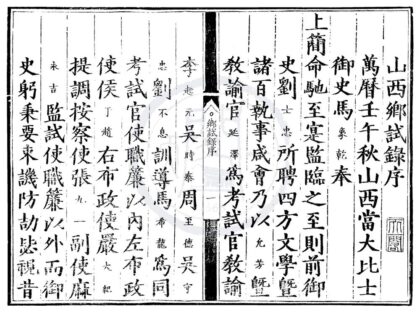 山西鄉試錄序
萬曆壬午秋山西當大比士
御史馬象乾奉
上簡命馳至寔監臨之至則前御
史劉士忠所聘四方文學暨
諸百執事咸會乃以允芳暨
教諭官延澤為考試官教諭
鄉試錄序
一
李起元吳時泰周至德吳守
忠劉不息訓導馬希龍為同
考試官使職簾以內左布政
使侯于趙右布政使嚴大紀
提調按察使張九一副使麻
永吉監試使職簾以外而御
史躬秉要束譏防劼毖視昔